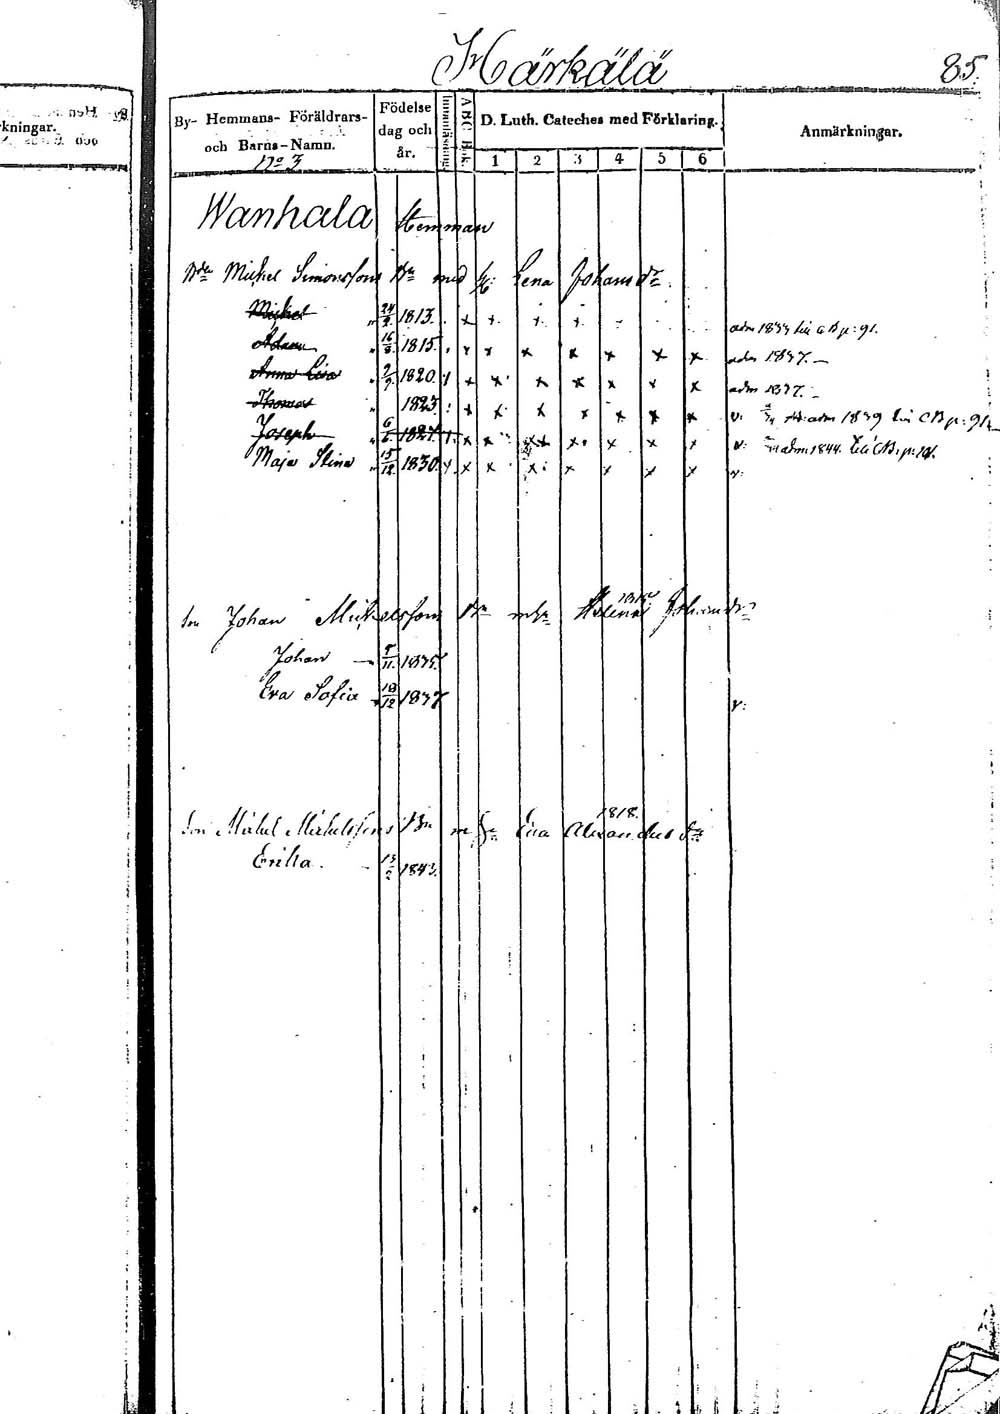 Härkälä 85.
kningar.
By- Hemmans- Föräldrars-
och Barns-Namn.
No 3
Födelse
dag och
år.
Innanläsning
A B C Bok.
D. Luth. Cateches med Förklaring.
1 2 3 4 5 6
Anmärkningar.
Wanhala Hemman
Bdn Mickel Simonssons Bn med H: Lena Johansdr
Mickel 24/9 1813. x x x x adm 1834 lii CB p: 91.
Adam 16/8 1815. x x x x x x x adm 1837.
Anna Lisa 2/9 1820. x x x x x x x adm 1837.
Thomas 1823. x x x x x x x v: adm 1839 lii CB p: 91
Joseph 6/6 1827. x x x x x x x v: adm 1844. lii CB. p:
Maja Stina 15/12 1830. x x x x x x x x v:
son Johan Mickelssons Bn Helena Johansdr
Johan 5/11 1835.
Eva Sofia 18/12 1837 v:
1818.
son Mickel Mickelssons Bn m H Lisa Alexandersdr
Erika. 1843.